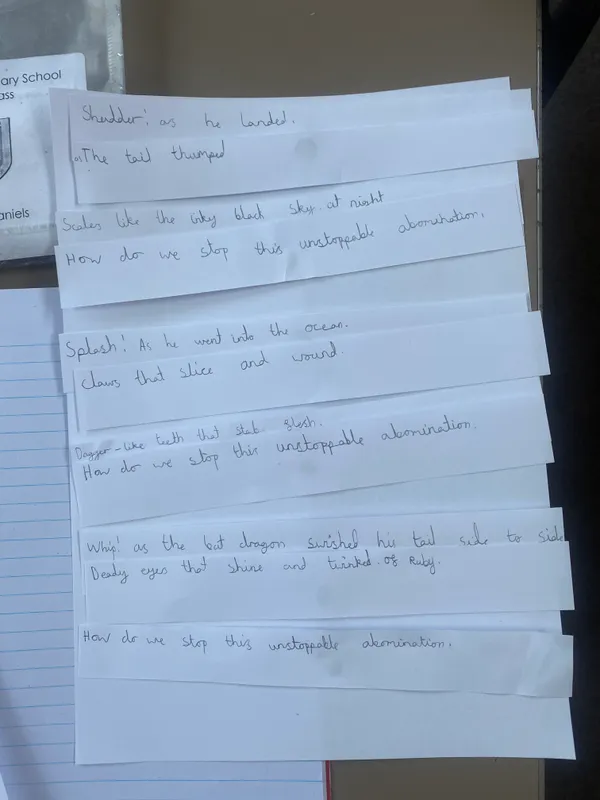 ary School
ass
aniels
Shudder! as he landed.
The tail thumped
Scales like the inky black sky at night
How do we stop this unstoppable abomination.
Splash! As he went into the ocean.
Claws that slice and wound.
Dagger-like teeth that stab flesh.
How do we stop this unstoppable abomination.
Whip! as the bat dragon swished his tail side to side
Deady eyes that shine and twinked of Ruby.
How do we stop this unstoppable abomination.